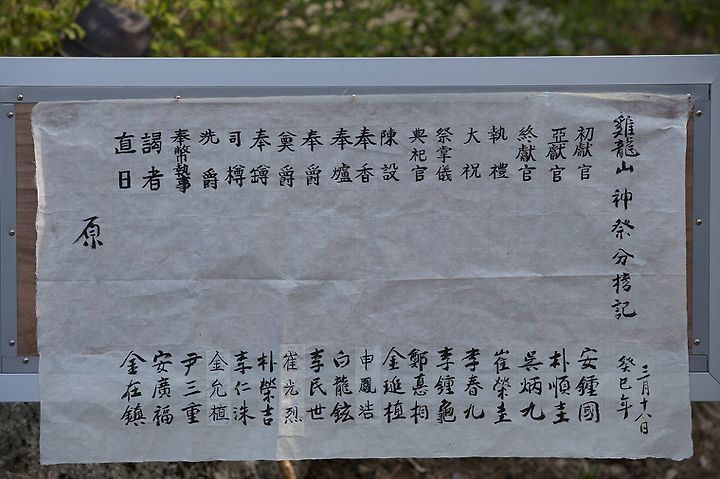 雞龍山神祭分榜記
癸巳年
三月十六日
初獻官 安鍾國
亞獻官 朴順圭
終獻官 吳炳九
執禮 崔榮圭
大祝 李春九
祭掌儀 李鍾龜
典祀官 鄭憙相
陳設 金延植
奉香 申鳳浩
奉爐 白龍鉉
奉爵 李民世
奠爵 崔光烈
奉鐏 朴榮吉
司樽 李仁洙
洗爵 金允植
奉幣執事 尹三重
謁者 安廣福
直日 金在鎮
原